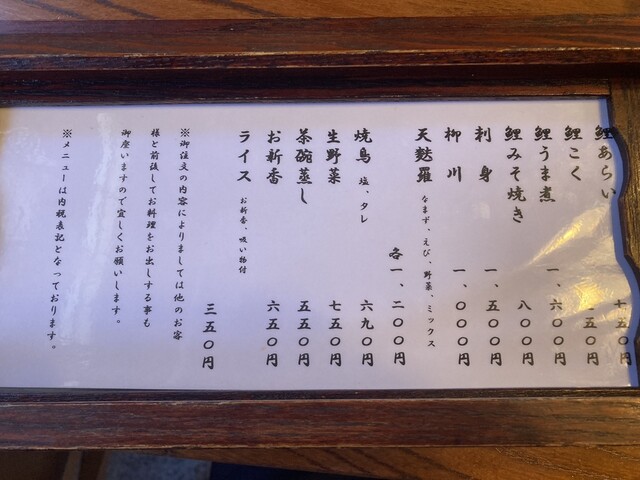 鯉あらい 七五〇円
鯉こく 五〇円
鯉うま煮 一、六〇〇円
鯉みそ焼き 八〇〇円
刺身 一、五〇〇円
柳川 一、〇〇〇円
天麩羅 なまず、えび、野菜、ミックス 各一、二〇〇円
焼鳥 塩、タレ 六九〇円
生野菜 七五〇円
茶碗蒸し 五五〇円
お新香 六五〇円
ライス お新香、吸い物付 三五〇円
※御注文の内容によりましては他のお客
様と前後してお料理をお出しする事も
御座いますので宜しくお願いします。
※メニューは内税表記となっております。